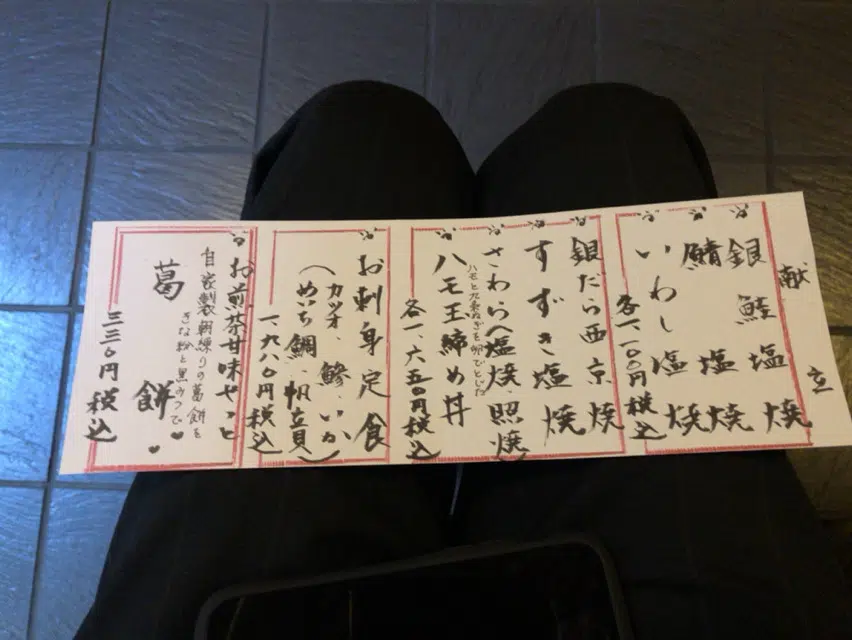 献立
銀鮭塩焼
鯖塩焼
いわし塩焼
各一、一〇〇円税込
銀だら西京焼
すずき塩焼
さわら(塩焼、照焼
ハモと九条ねぎを卵でとじた
ハモ玉締め丼
各一、六五〇円税込
お刺身定食
(カツオ、鯵、いか
めいち鯛、帆立貝)
一、九八〇円税込
お煎茶甘味セット
自家製朝練りの葛餅を
きな粉と黒みつで♥
葛餅♥
三三〇円税込